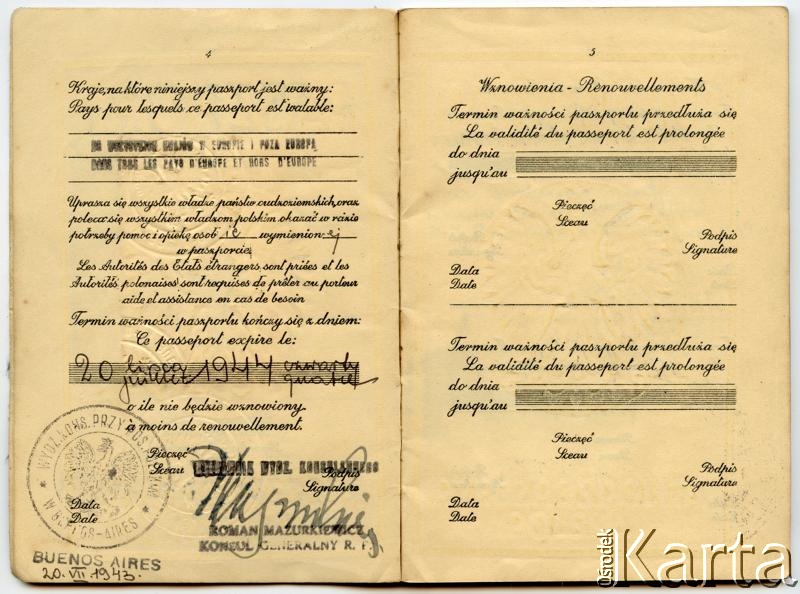 4
Kraje, na które niniejszy paszport jest ważny:
Pays pour lesquels ce passeport est walable:
DO WSZYSTKICH KRAJÓW W EUROPIE I POZA EUROPĄ
DANS TOUS LES PAYS D'EUROPE ET HORS D'EUROPE
Uprasza się wszystkie władze państw cudzoziemskich, oraz
poleca się wszystkim władzom polskim okazać w razie
potrzeby pomoc i opiekę osob ie wymienion ej
w paszporcie.
Les Autorités des Etats étrangers sont priées et les
Autorités polonaises sont requises de prêter au porteur
aide et assistance en cas de besoin
Termin ważności paszportu kończy się z dniem:
Ce passeport expire le:
20 lipca 1944 czwarty
juillet quatre
o ile nie będzie wznowiony.
à moins de renouvellement.
Pieczęć
Sceau
KIEROWNIK WYDZ. KONSULARNEGO
Podpis
Signature
Data
Date
ROMAN MAZURKIEWICZ
KONSUL GENERALNY R. P.
WYDZ. KONS. PRZY POS.
W BUENOS-AIRES
BUENOS AIRES
20. VII 1943.
5
Wznowienia - Renouvellements
Termin ważności paszportu przedłuża się
La validité du passeport est prolongée
do dnia
jusqu'au
Pieczęć
Sceau
Podpis
Signature
Data
Date
Termin ważności paszportu przedłuża się
La validité du passeport est prolongée
do dnia
jusqu'au
Pieczęć
Sceau
Podpis
Signature
Data
Date
Ośrodek
Karta